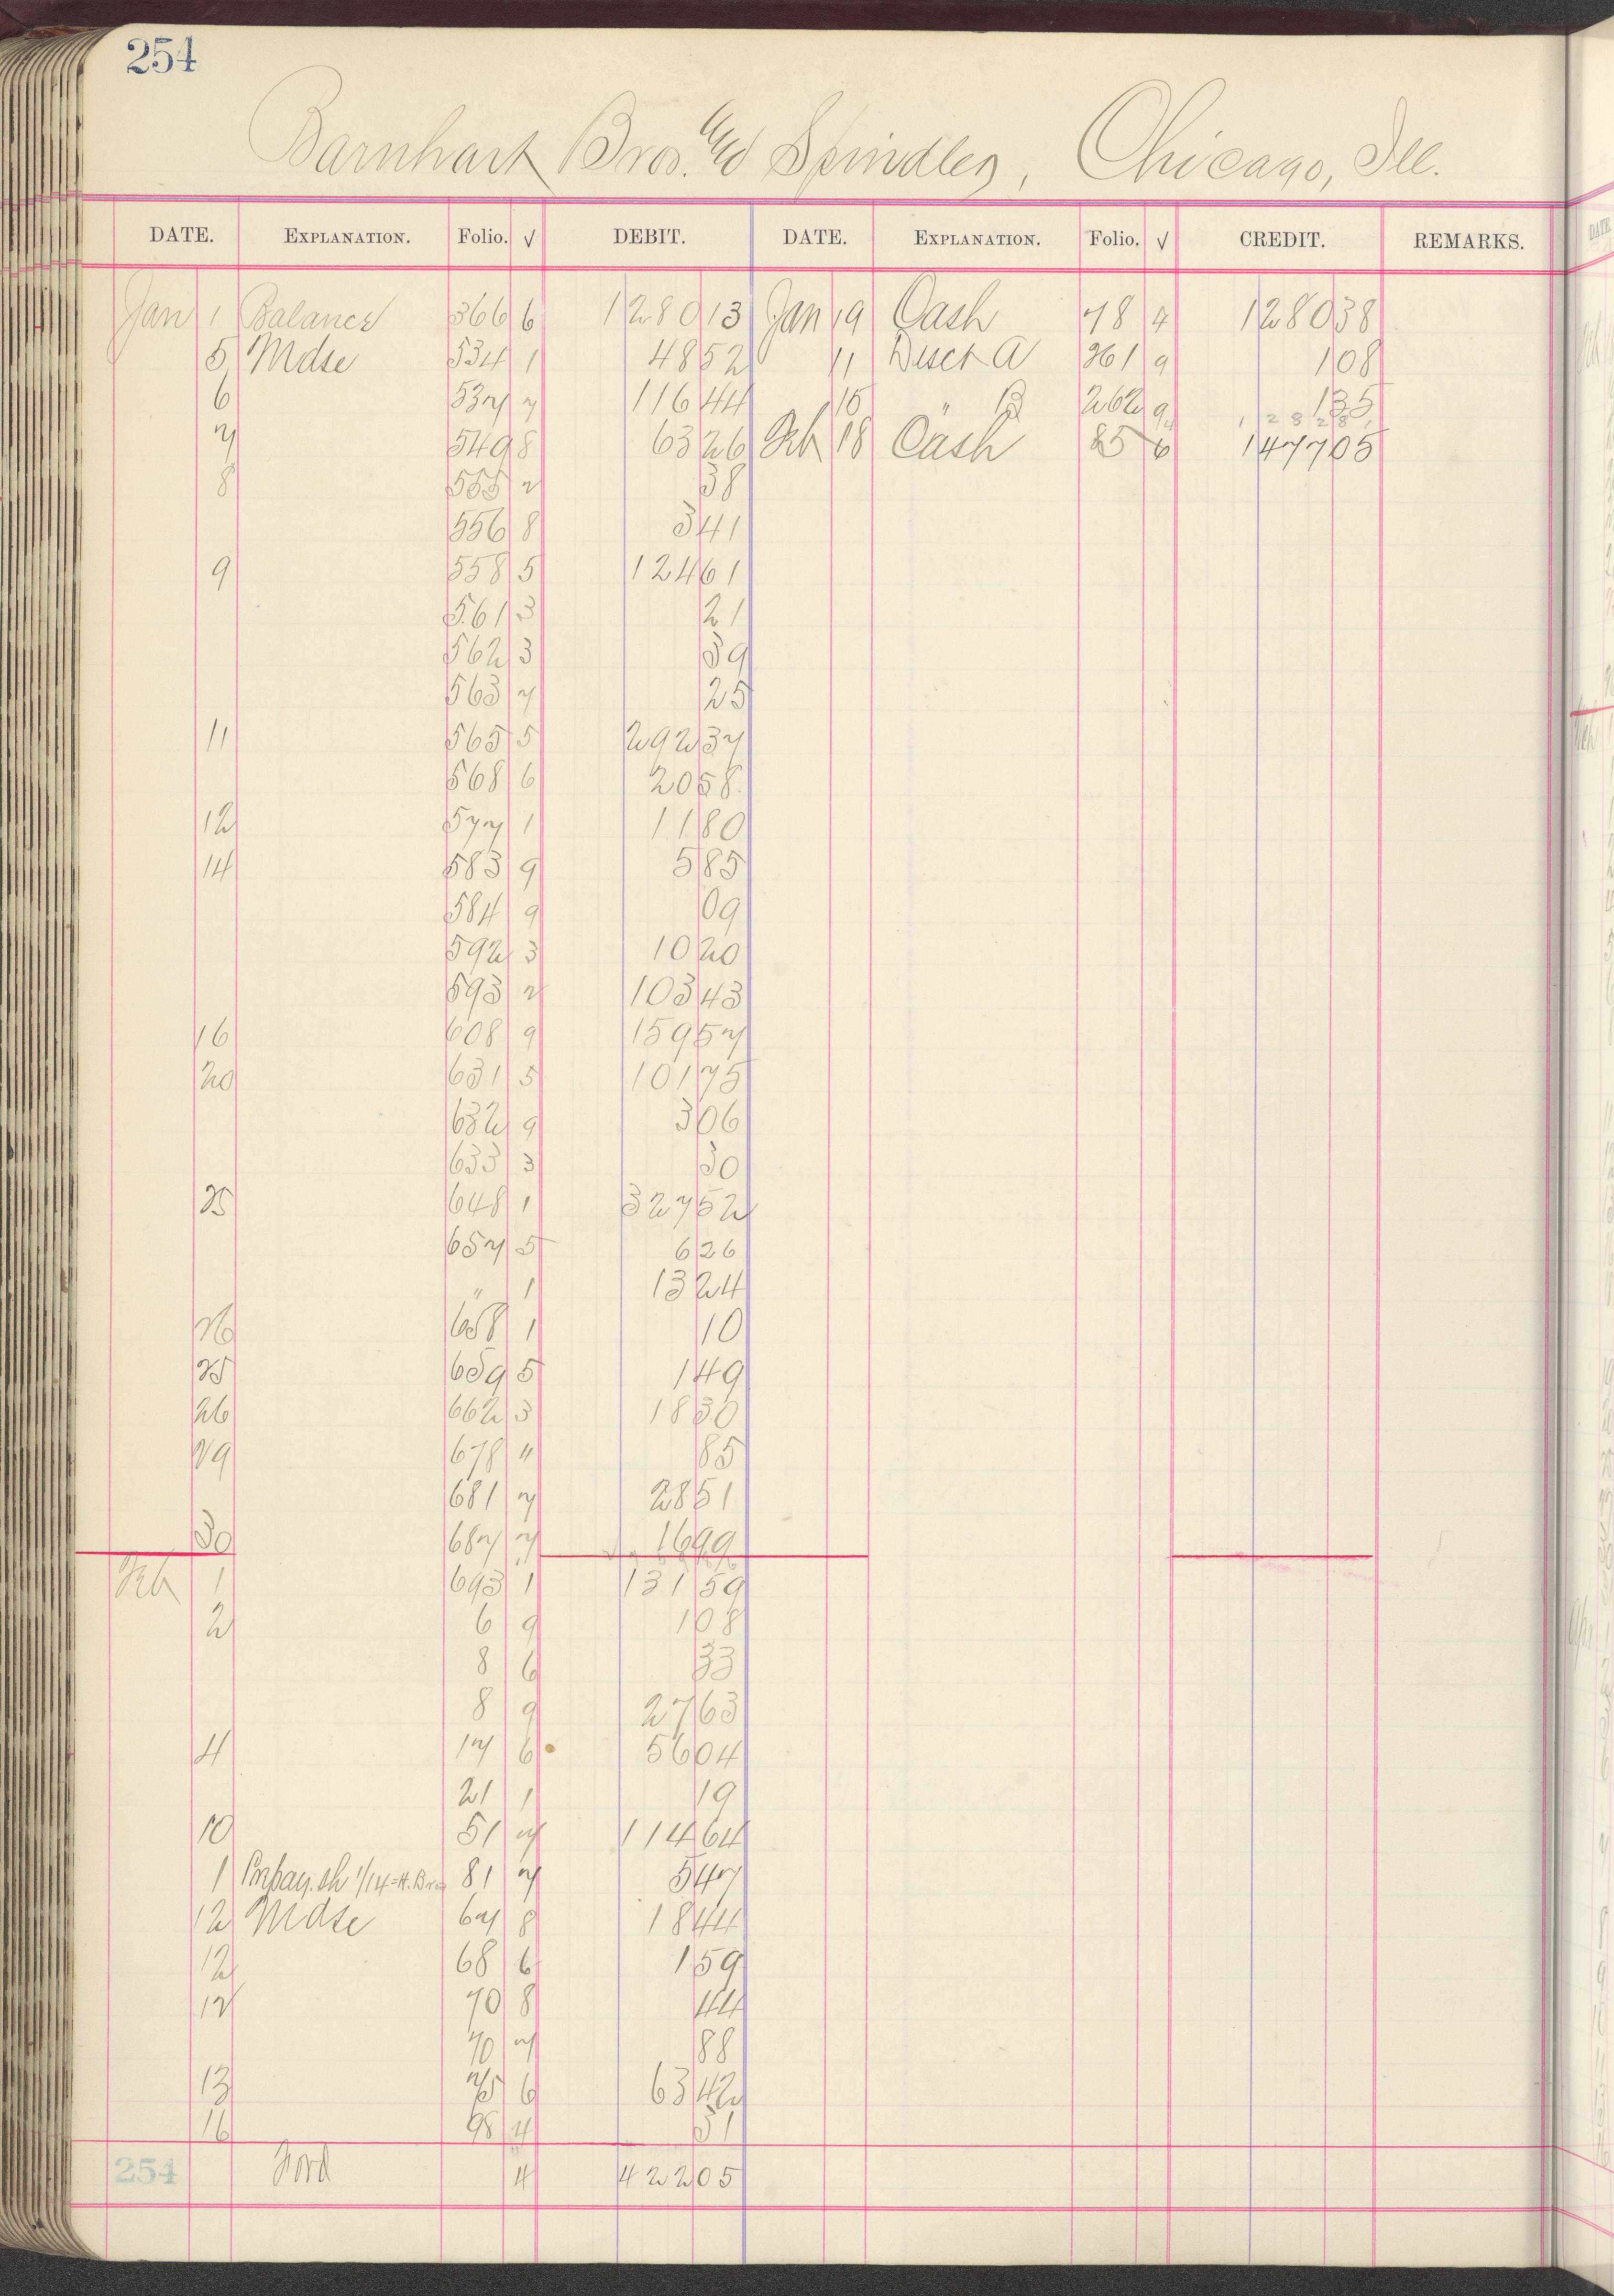 254
Barnhart Bros. and Spindler, Chicago, Ill.
DATE. EXPLANATION. Folio. √ DEBIT. DATE. EXPLANATION. Folio. √ CREDIT. REMARKS.
Jan 1 Balance 366 6 1280 13 Jan 9 Cash 78 4 1280 38
5 Mdse 534 1 48 52 11 Disct A 261 9 1 08
6 537 7 116 44 15 " B 262 9 1 35
7 549 8 63 26 Feb 18 Cash 85 6 1477 05
8 555 2 38
556 8 3 41
9 558 5 124 61
561 3 21
562 3 39
563 7 25
11 565 5 292 37
568 6 20 58
12 577 1 11 80
14 583 9 5 85
584 9 09
592 3 10 20
593 2 103 43
16 608 9 159 57
20 631 5 101 75
632 9 3 06
633 3 30
25 648 1 327 52
657 5 6 26
" 1 13 24
26 658 1 10
25 659 5 1 49
26 662 3 18 30
29 678 4 85
681 7 28 51
30 687 7 16 99
Feb 1 693 1 131 59
2 6 9 1 08
8 6 33
8 9 27 63
4 17 6 56 04
21 1 19
10 51 7 114 64
1 Prepay. ch 1/14 H. Bros 81 7 5 47
12 Mdse 67 8 18 44
12 68 6 1 59
12 70 8 44
70 7 88
13 75 6 63 42
16 98 4 51
254 Ford 4 422 05